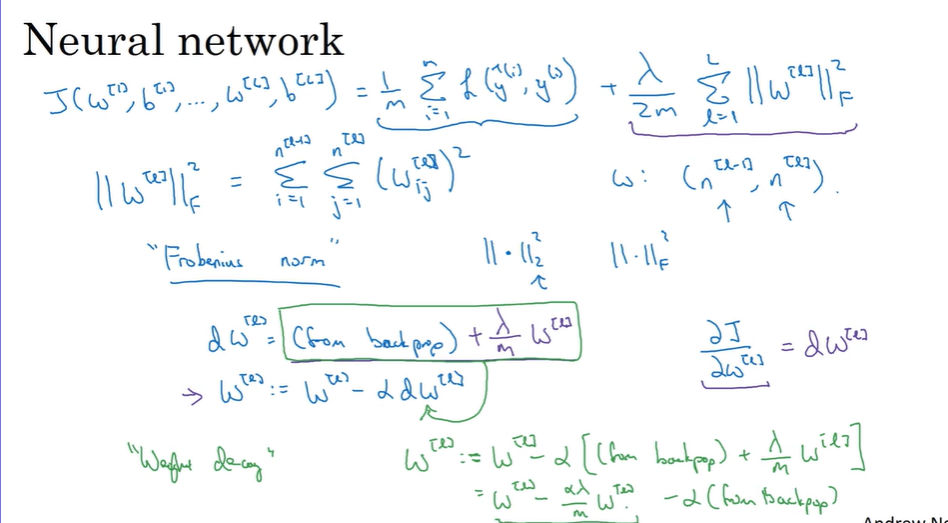 Neural network
J(w^[1], b^[1], ..., w^[L], b^[L]) = 1/m ∑_{i=1}^{n} L(ŷ^(i), y^(i)) + λ/2m ∑_{l=1}^{L} ||w^[l]||_F^2
||w^[l]||_F^2 = ∑_{i=1}^{n^[l-1]} ∑_{j=1}^{n^[l]} (w_ij^[l])^2    w: (n^[l-1], n^[l]).
"Frobenius norm"    ||·||_2^2    ||·||_F^2
dw^[l] = (from backprop) + λ/m w^[l]    ∂J/∂w^[l] = dw^[l]
→ w^[l] := w^[l] - α dw^[l]
"Weight decay"    w^[l] := w^[l] - α [(from backpop) + λ/m w^[l]]
= w^[l] - αλ/m w^[l] - α (from backpop)
Andrew